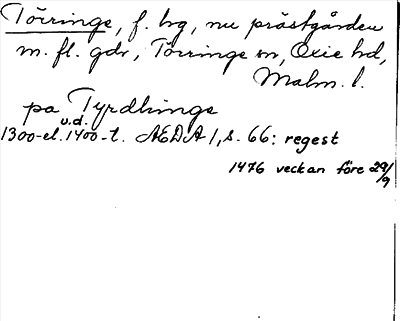 Törringe, f. by, nu prästgården
m. fl. gdr, Törringe sn, Oxie hd,
Malm. l.
pa Tyrdhinge
u.d.
1300-el. 1400-t. ÆDA 1, s. 66: regest
1476 veckan före 29/9